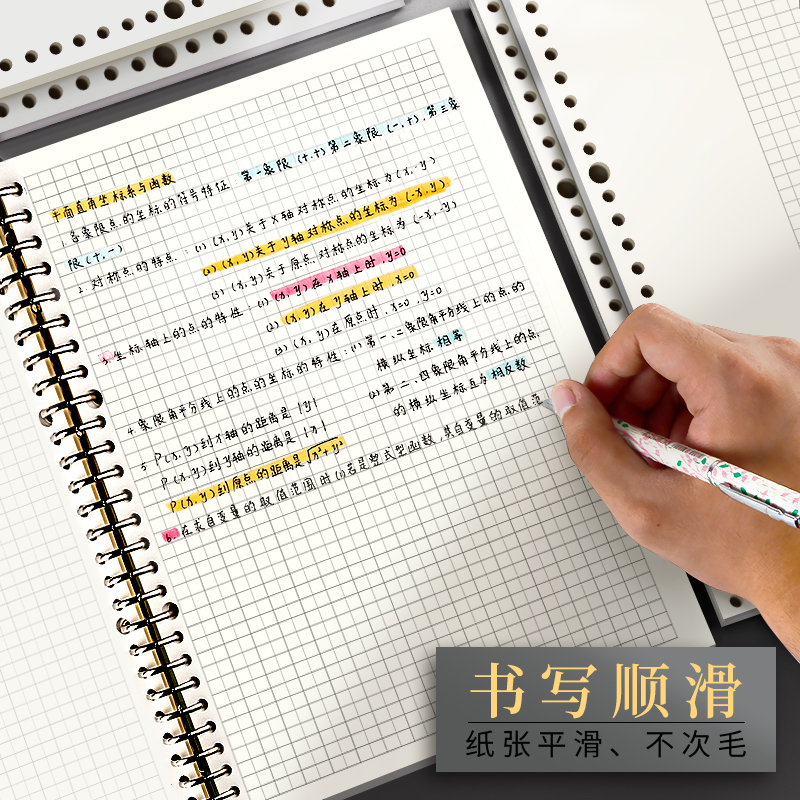 平面直角坐标系与函数
1.各象限点的坐标的符号特征 第一象限(+,+)第二象限(-,+),第三象
限(+,-)
2.对称点的特点:(1)(x,y)关于x轴对称点的坐标为(x,-y)
(2)(x,y)关于y轴对称点的坐标为(-x,y)
(3)(x,y)关于原点对称点的坐标为(-x,-y)
3.坐标轴上的点的特性:(1)(x,y)在x轴上时,y=0
(2)(x,y)在y轴上时,x=0
(3)(x,y)在原点时,x=0,y=0
4.象限角平分线上的点的坐标的特性:(1)第一、三象限角平分线上的点的
横纵坐标相等
(2)第二、四象限角平分线上的点
的横纵坐标互为相反数
5.P(x,y)到x轴的距离是|y|
P(x,y)到y轴的距离是|x|
P(x,y)到原点的距离是√x²+y²
6.在求自变量的取值范围时(1)若是整式型函数,其自变量的取值范
书写顺滑
纸张平滑、不次毛